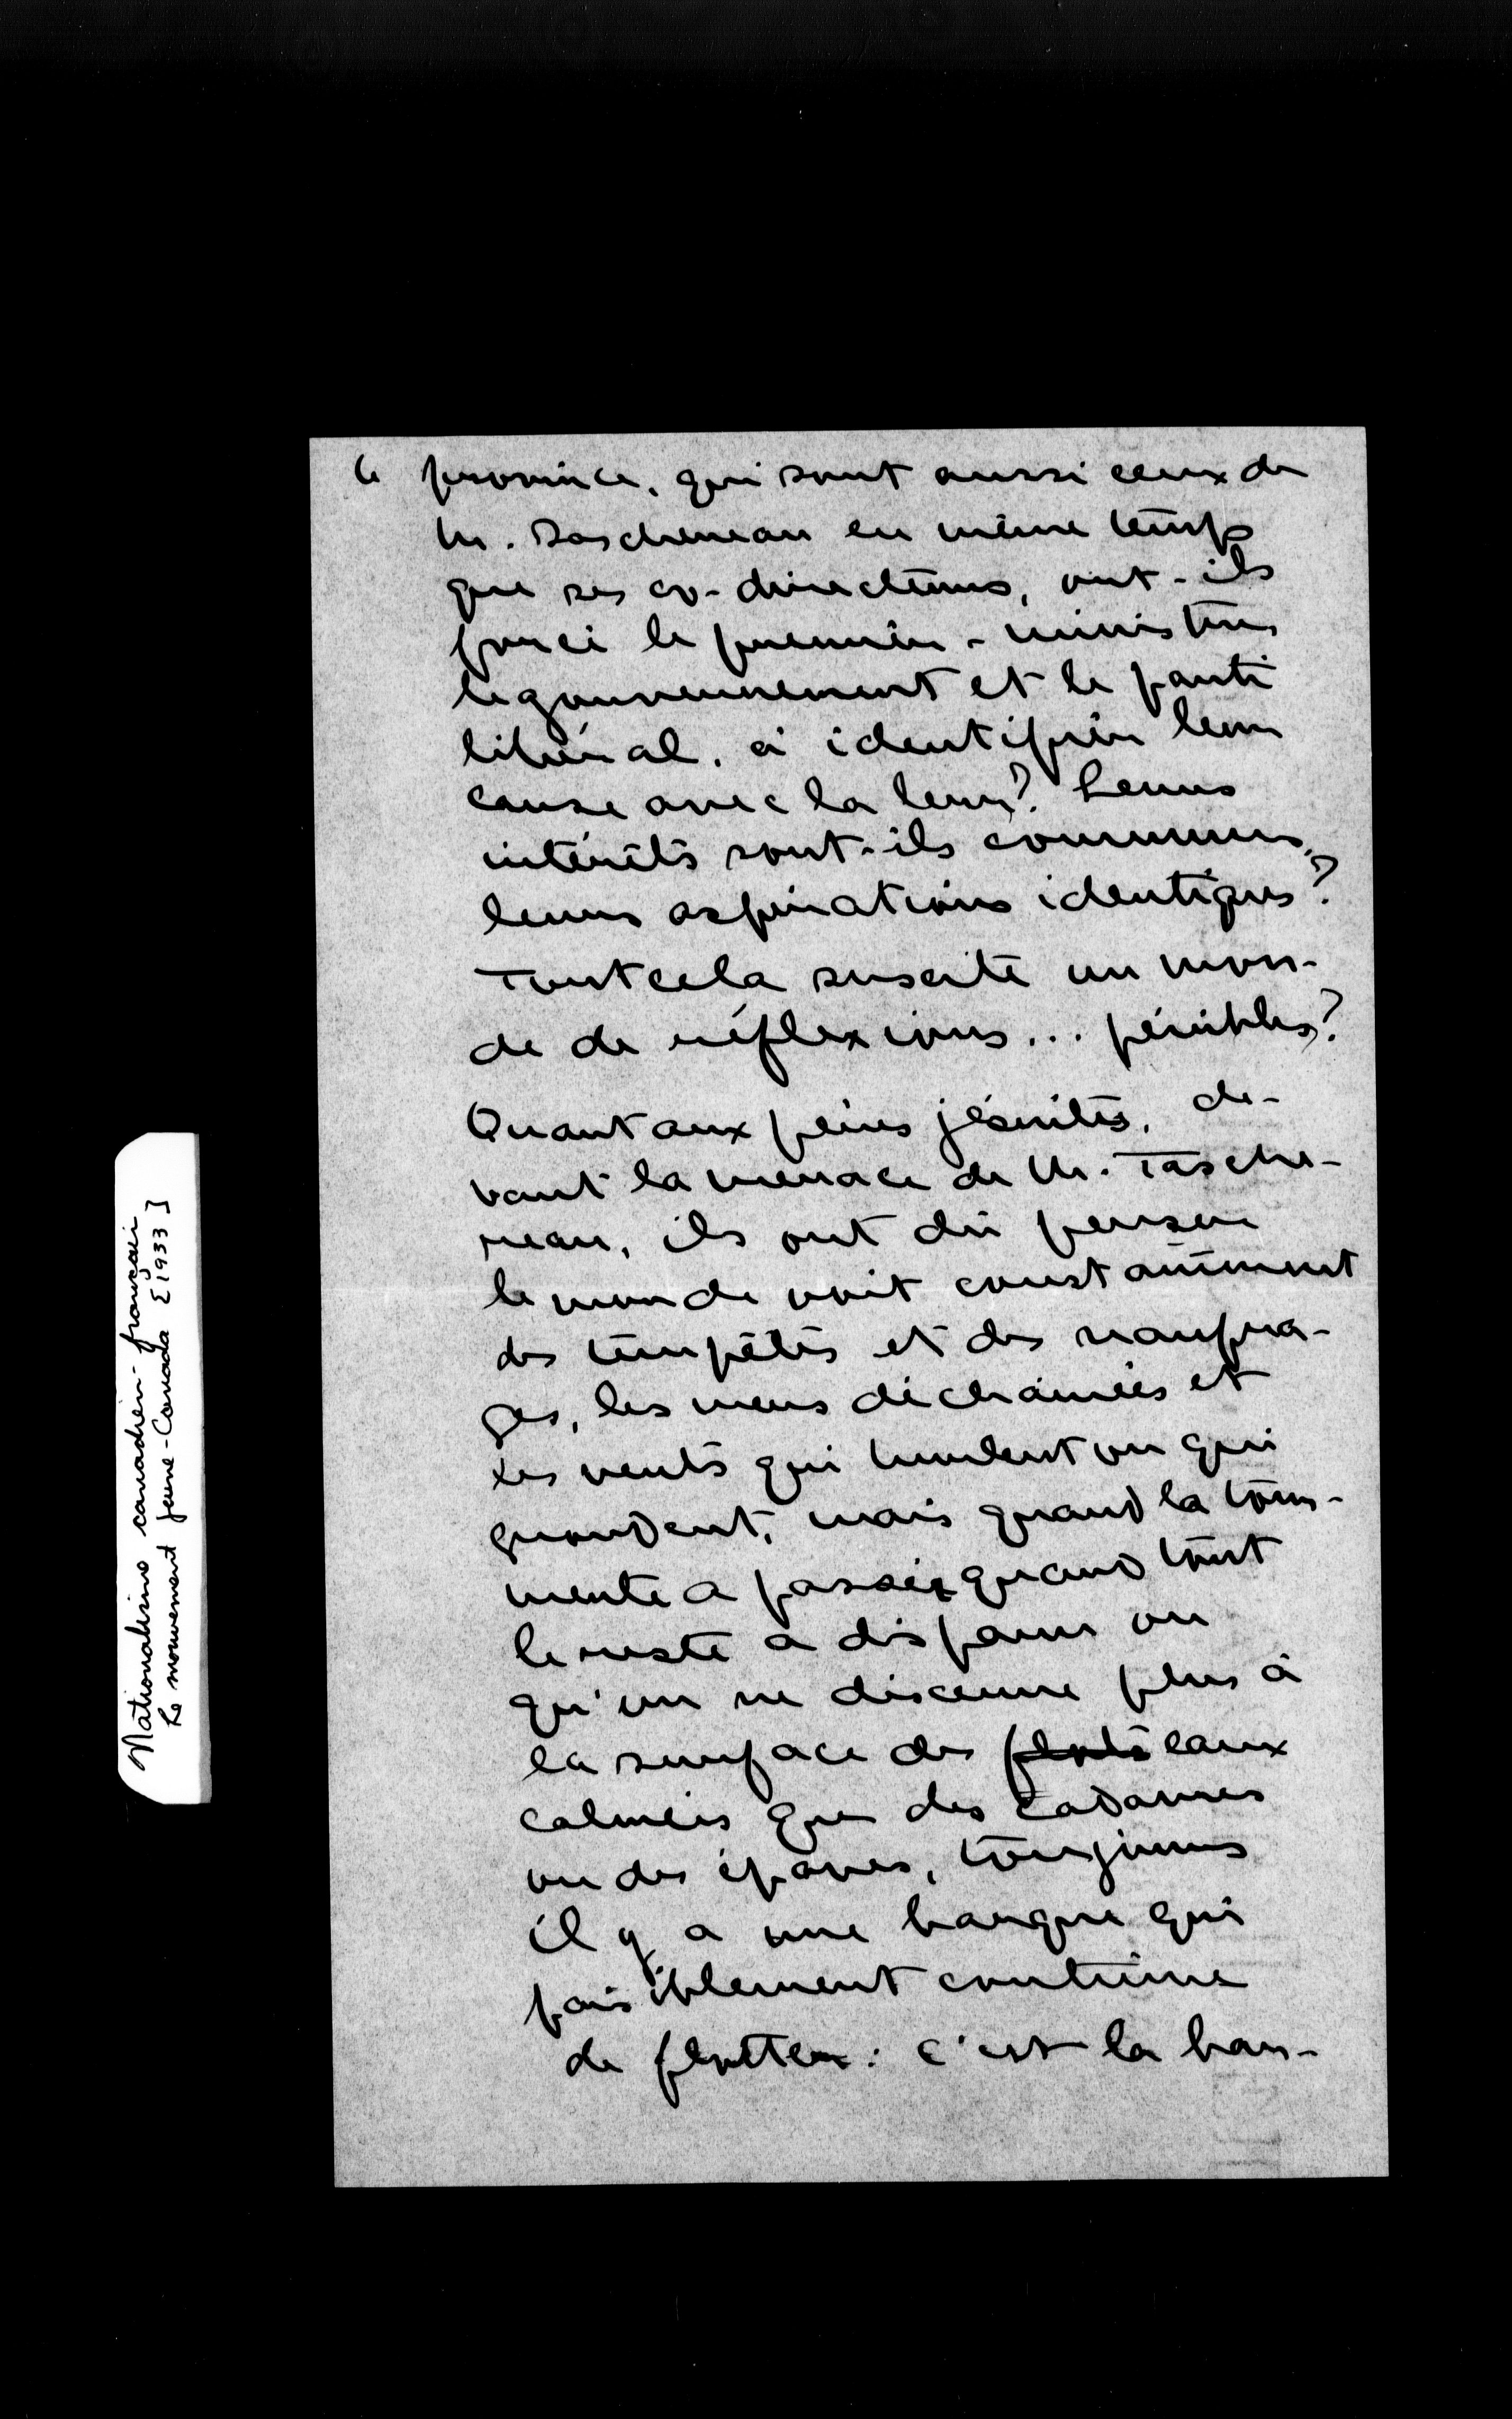 6 province, qui sont aussi ceux de
M. Taschereau en même temps
que ses co-directeurs, ont-ils
forcé le premier-ministre
le gouvernement et le parti
libéral, à identifier leur
cause avec la leur? Leurs
intérêts sont-ils communs,
leurs aspirations identiques?
Tout cela suscite un mon-
de de réflexions... pénibles?
Quant aux pères jésuites, de-
vant la menace de M. Tasche-
reau, ils ont dû penser
le monde voit constamment
des tempêtes et des naufra-
ges, les mers déchaînées et
les vents qui hurlent ou qui
grondent, mais quand la tour-
mente a passé, quand tout
le reste a disparu ou
qu'on ne discerne plus à
la surface des flots eaux
calmées que des cadavres
ou des épaves, toujours
il y a une barque qui
paisiblement continue
de flotter: c'est la bar-
Nationalisme canadien-français
Le mouvement Jeune-Canada [1933]